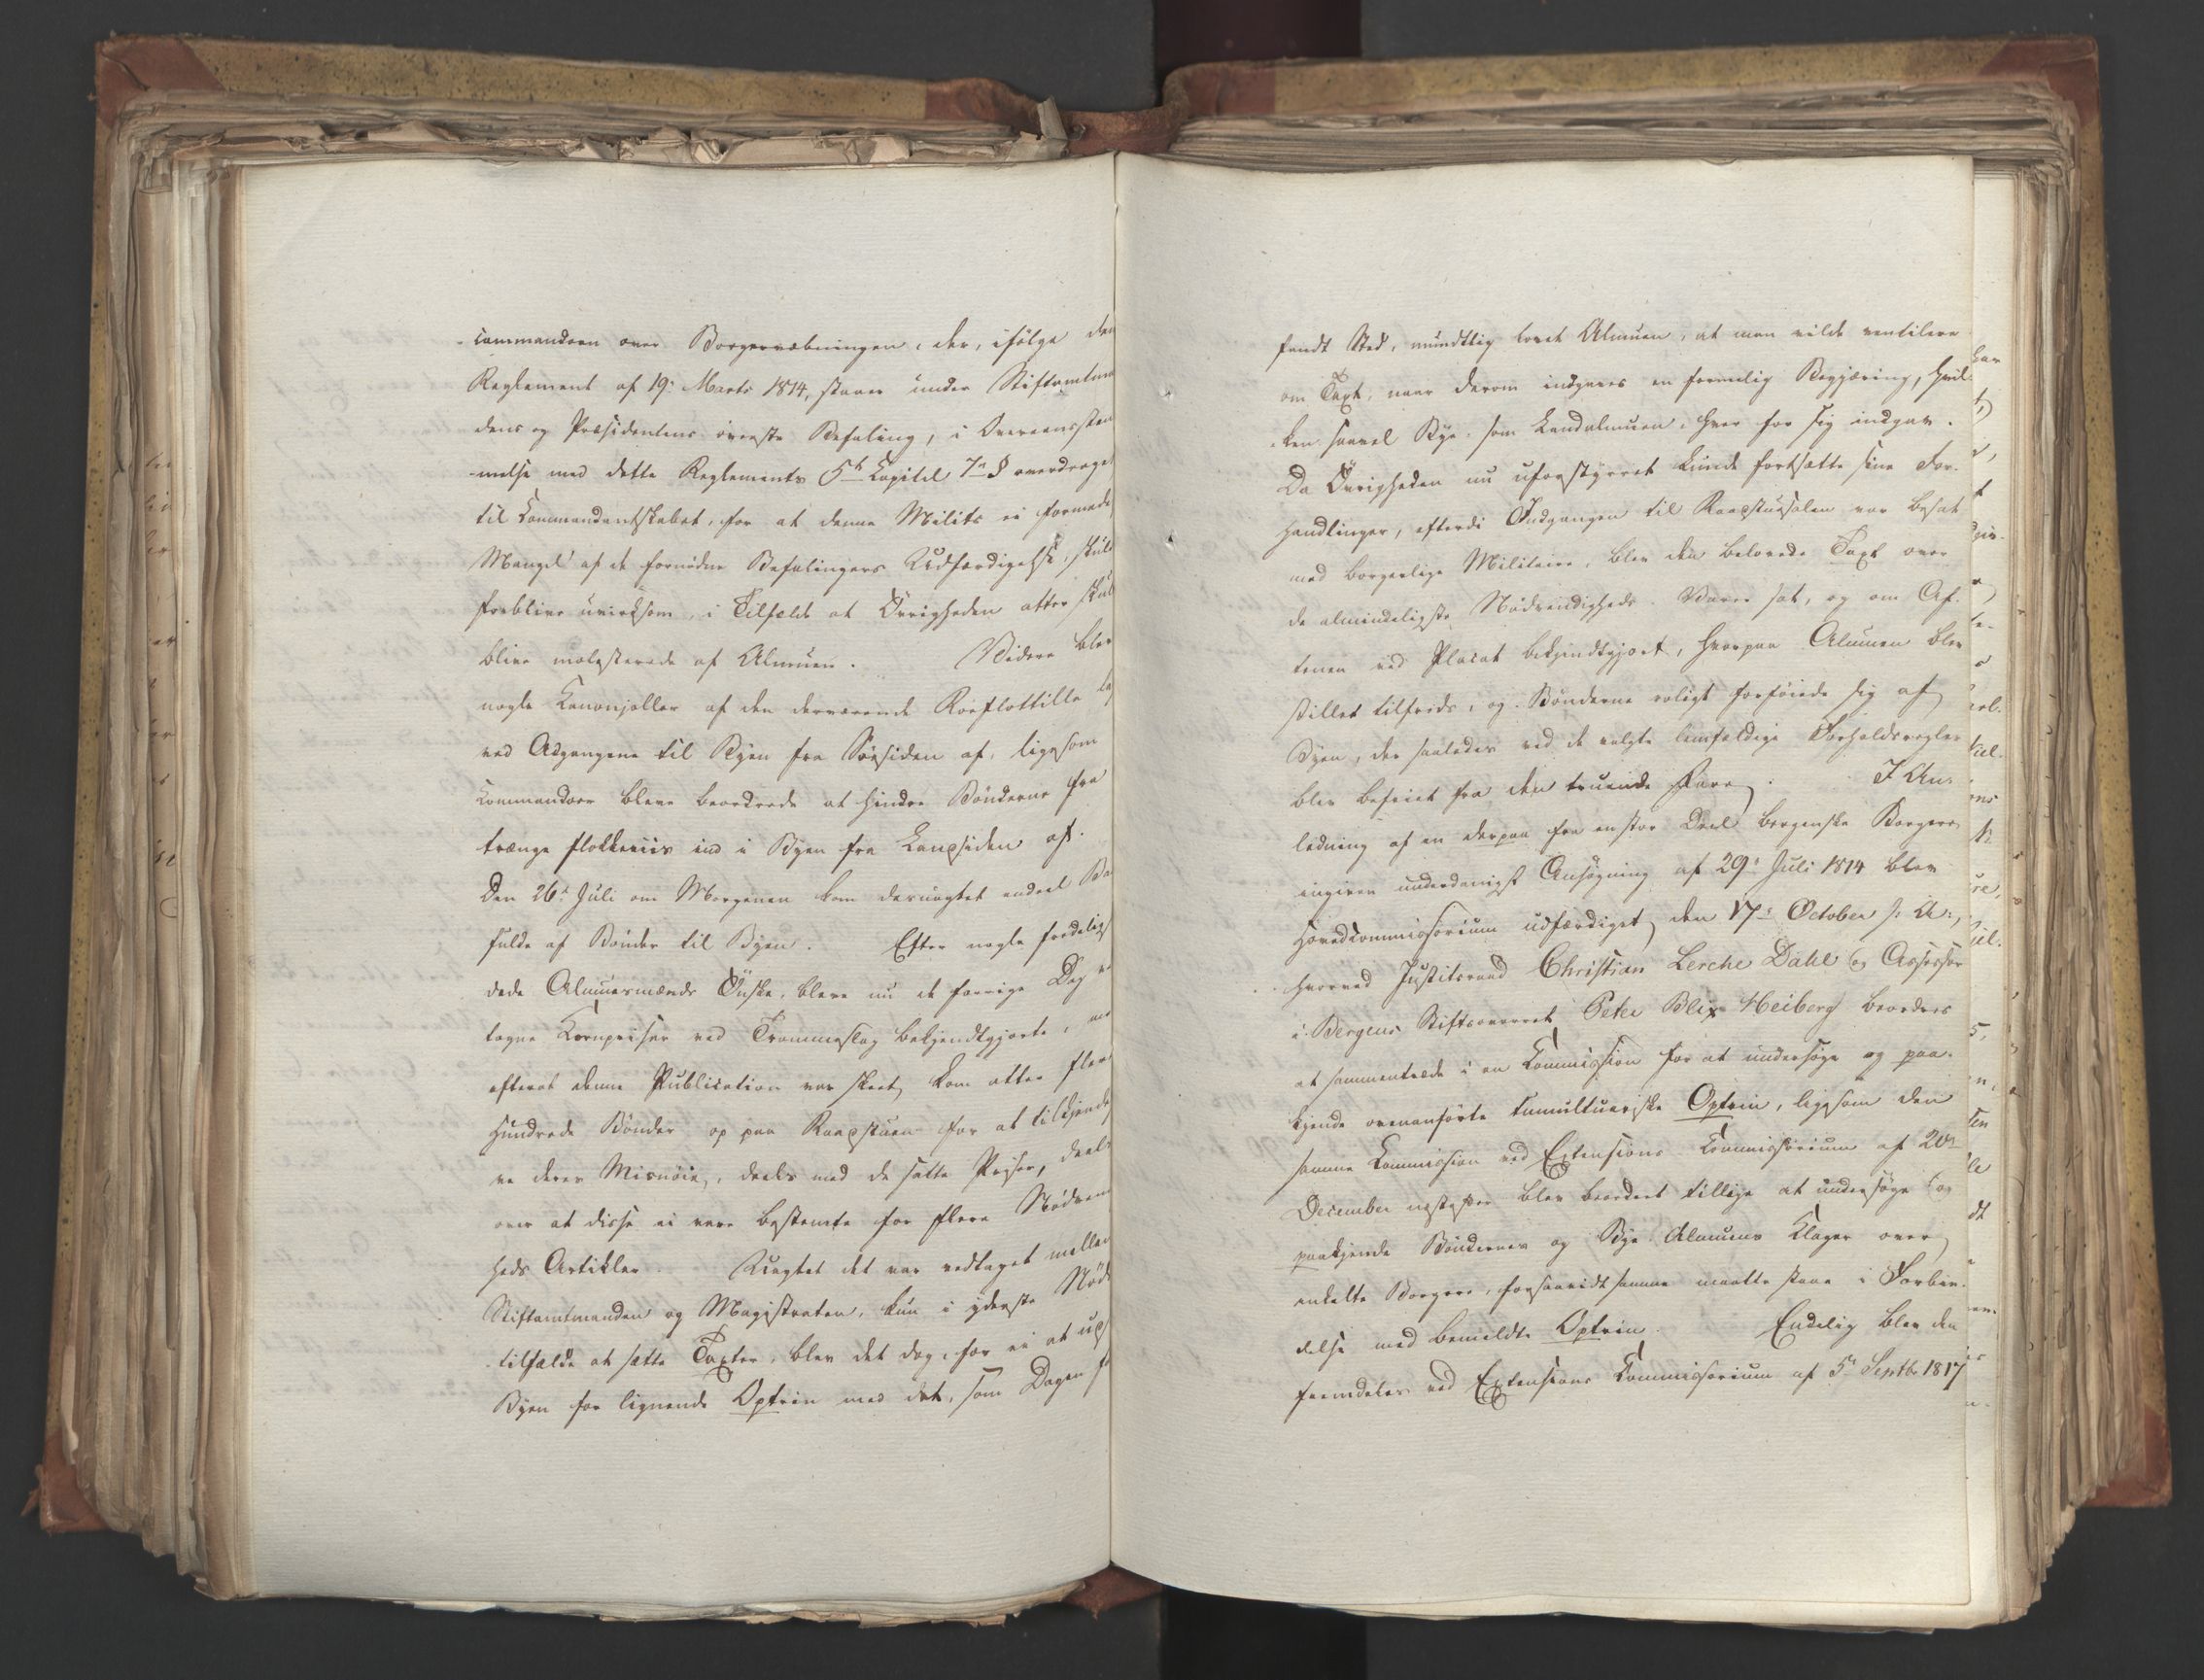 commandoen over Borgervæbningen, der, ifølge den
Reglement af 19. Marts 1814, staaer under Stiftamtma
dens og Præsidentens øverste Befaling, i Overeensstem
melse med dette Reglements 5te Kapitel 7de § overdraget
til Commandantskabet, for at denne Milits ei formedel
Mangel af de fornødne Befalingers Udfærdigelse, skuld
forblive uvirksom, i Tilfælde at Øvrigheden atter skul
blive molesterede af Almuen. Videre blev
nogle Kanonjoller af den derværende Roeflottille
ved Adgangene til Byen fra Søesiden af, ligesom
Commandoer bleve beordrede at hindre Bønderne fra
trænge flokkeviis ind i Byen fra Landsiden af.
Den 26de Juli om Morgenen kom desuagtet endeel
fulde af Bønder til Byen. Efter nogle fredelig
dede Almuesmænds Ønske, bleve nu de forrige Dag
tagne Kornpriser ved Trommeslag bekjendtgjorte,
efterat denne Publication var skeet, kom atter flere
Hundrede Bønder op paa Raadstuen for at tilkjendegi
ve deres Misnøie, deels med de satte Priser, deels
over at disse ei vare bestemte for flere Nødven
heds Artikler. Uagtet det var vedtaget mellem
Stiftamtmanden og Magistraten, kun i yderste Nøds
tilfælde at sætte Taxter, blev det dog, for ei at uds
Byen for lignende Optrin med det, som Dagen f
fandt Sted, mundtlig lovet Almuen, at man vilde ventilere
om Taxt, naar derom indgaves en formelig Begjæring, hvil-
ken saavel Bye- som Landalmuen, hver for sig indgav.
Da Øvrigheden nu uforstyrret kunde fortsætte sine For-
handlinger, efterdi Indgangen til Raadstuesalen var besat
med borgerlige Militaire, blev den belovede Taxt over
de almindeligste Nødvendigheds Varer sat, og om Af-
tenen ved Placat bekjendtgjort, hvorpaa Almuen blev
stillet tilfreds, og Bønderne roligt forføiede sig af
Byen, der saaledes ved de valgte lemfældige Forholdsregler
blev befriet fra den truende Fare. I An-
ledning af en derpaa fra en stor Deel bergenske Borgere
ingiven underdanigst Ansøgning af 29. Juli 1814 blev
Hovedcommissorium udfærdiget den 17. October s: A:,
hvorved Justitsraad Christian Lerche Dahl og Assessor
i Bergens Stiftsoverret Peter Blix Heiberg beordres
at sammentræde i en Commission for at undersøge og paa-
kjende ovenanførte tumultuariske Optrin, ligesom den
samme Commission ved Extensions Commissorium af 20de
December næstefter blev beordret tillige at undersøge og
paakjende Bøndernes og Bye Almuens Klager over
enkelte Borgere, forsaavidt samme maatte staae i Forbin-
delse med bemeldte Optrin. Endelig blev den
fremdeles ved Extensions Commissorium af 5te Septbr 1817